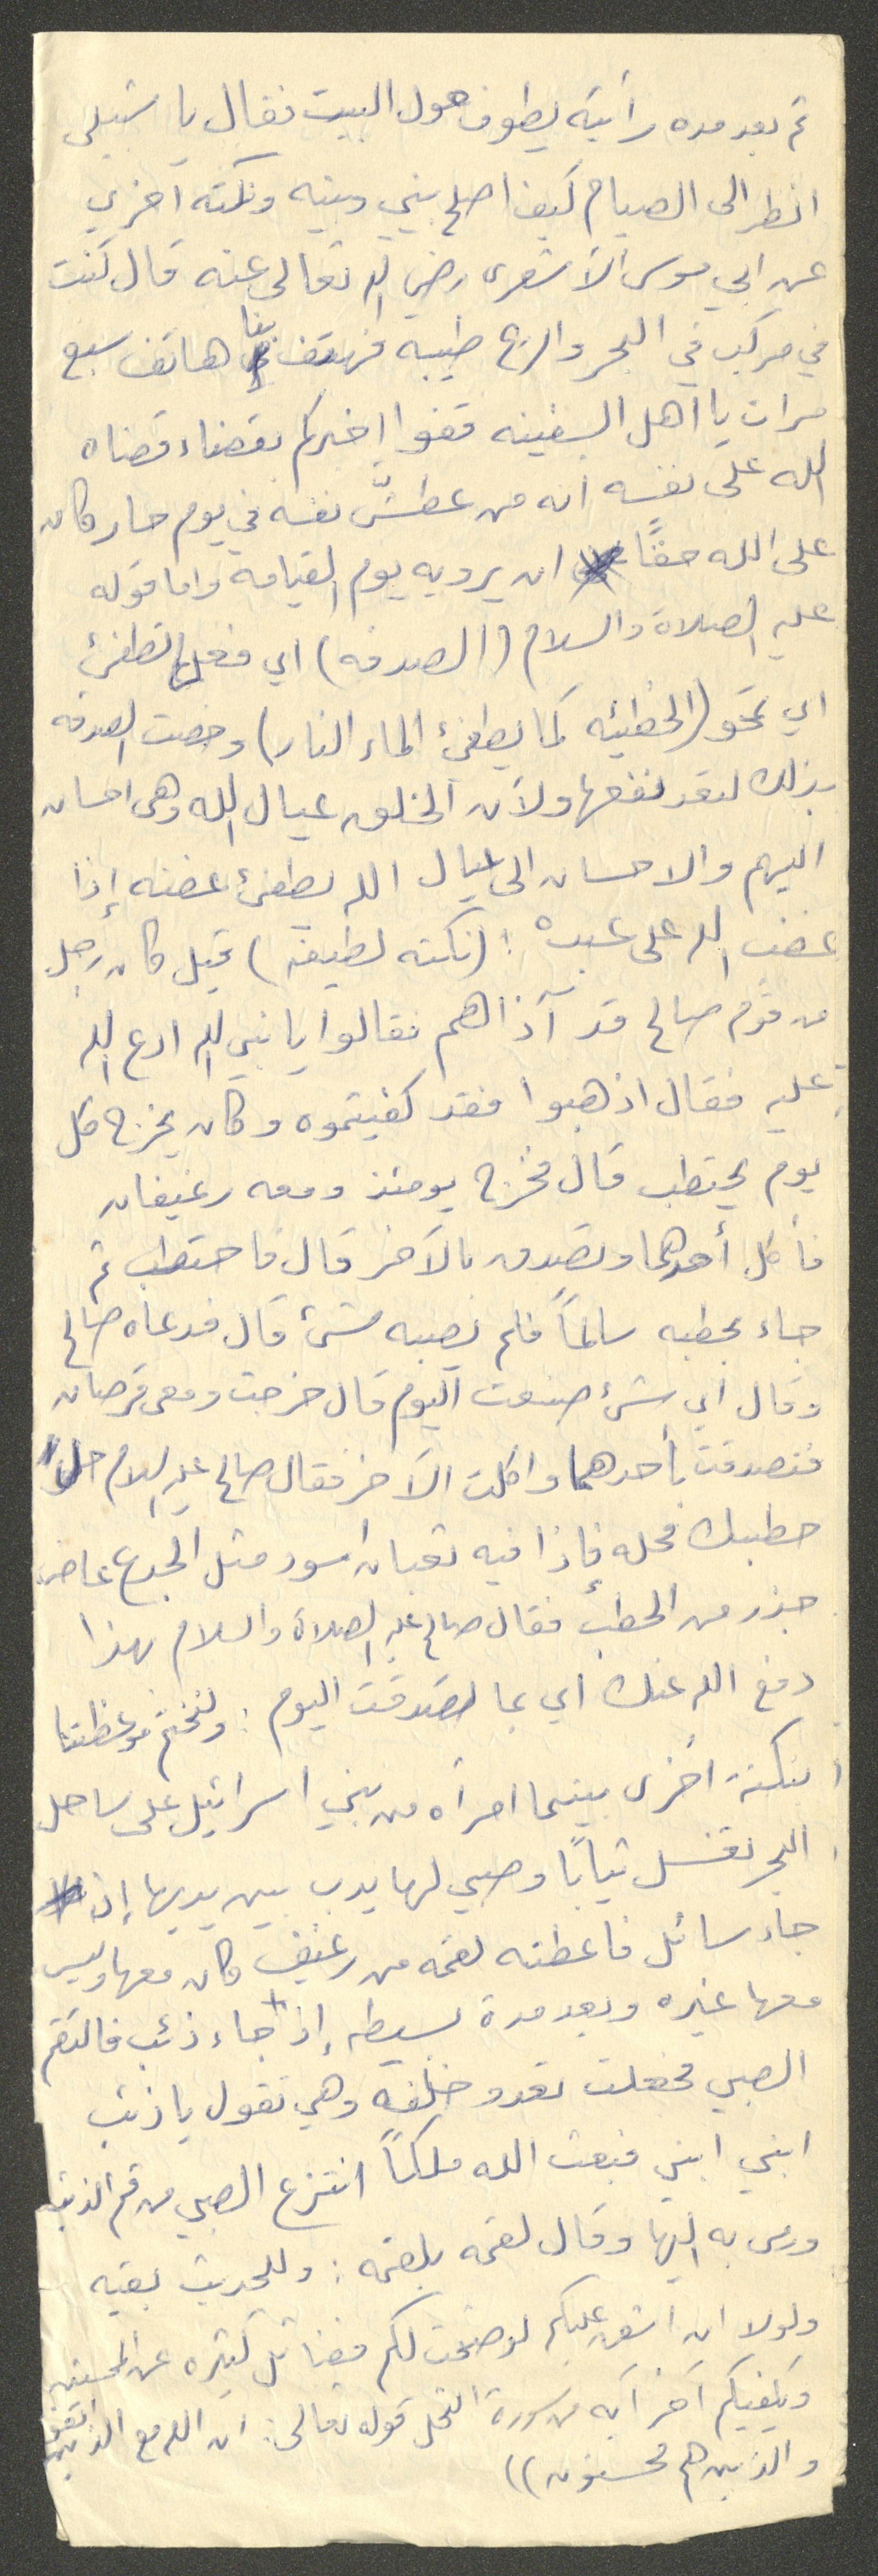 ثم بعد مده رأيته يطوف حول البيت فقال يا شبلى
انظر الى الصيام كيف اصلح بيني وبينه ونكته اخرى
عن ابي موسى الأشعرى رضي الله تعالى عنه قال كنت
في مركب في البحر والريح طيبه فهتف بنا هاتف سبع
مرات يا أهل السفينه قفوا اخبركم بقضاء قضاه
الله على نفسه انه من عطشّ نفسه في يوم حار كان
على الله حقًا ان يرويه يوم القيامه واما قوله
عليه الصلاة والسلام (الصدقه) اي فعلها تطفئ
اي تمحو (الخطيئه كما يطفئ الماء النار) وخصت الصدقه
بذلك لتعد نفعها ولأن الخلق عيال الله وهى احسان
اليهم والاحسان الى عيال الله يطفئ غضبه إذا
غضب الله على عبده : (نكته لطيفه) قيل كان رجل
من قوم صالح قد آذاهم فقالوا يا نبي الله ادع الله
عليه فقال اذهبوا فقد كفيتموه وكان يخرج كل
يوم يحتطب قال فخرج يومئذ ومعه رغيفان
فأكل أحدهما وتصدق بالآخر قال فاحتطب ثم
جاء بحطبه سالماً فلم يصبه شئ قال فدعاه صالح
وقال اي شئ صنعت اليوم قال خرجت ومعى قرصان
فتصدقت بأحدهما واكلت الآخر فقال صالح عليه السلام حل
حطبك فحله فإذا فيه ثعبان اسود مثل الجذع عاض
جذر من الحطب فقال صالح عليه الصلاة والسلام بهذا
دفع الله عنك اي بما تصدقت اليوم : ولنختم موعظتنا
بنكتة اخرى بينما امرأه من بني اسرائيل على ساحل
البحر تغسل ثيابًا وصبي لها يدب بين يديها إذ
جاء سائل فاعطته لقمه من رغيف كان معها وليس
معها غيره وبعد مدة بسيطه إذ جاء ذئب فالتقم
الصبي فجعلت تعدو خلفه وهي تقول يا ذئب
ابني ابني فبعث الله ملكاً انتزع الصبي من فم الذئب
ورمى به اليها وقال لقمه بلقمه : وللحديث بقيه
ولولا ان اشق عليكم لوضحت لكم فضائل كثيره عن المحسنين
ويكفيكم آخر آيه من سورة النحل قوله تعالى : ان الله مع الذين اتقوا
والذين هم محسنون))